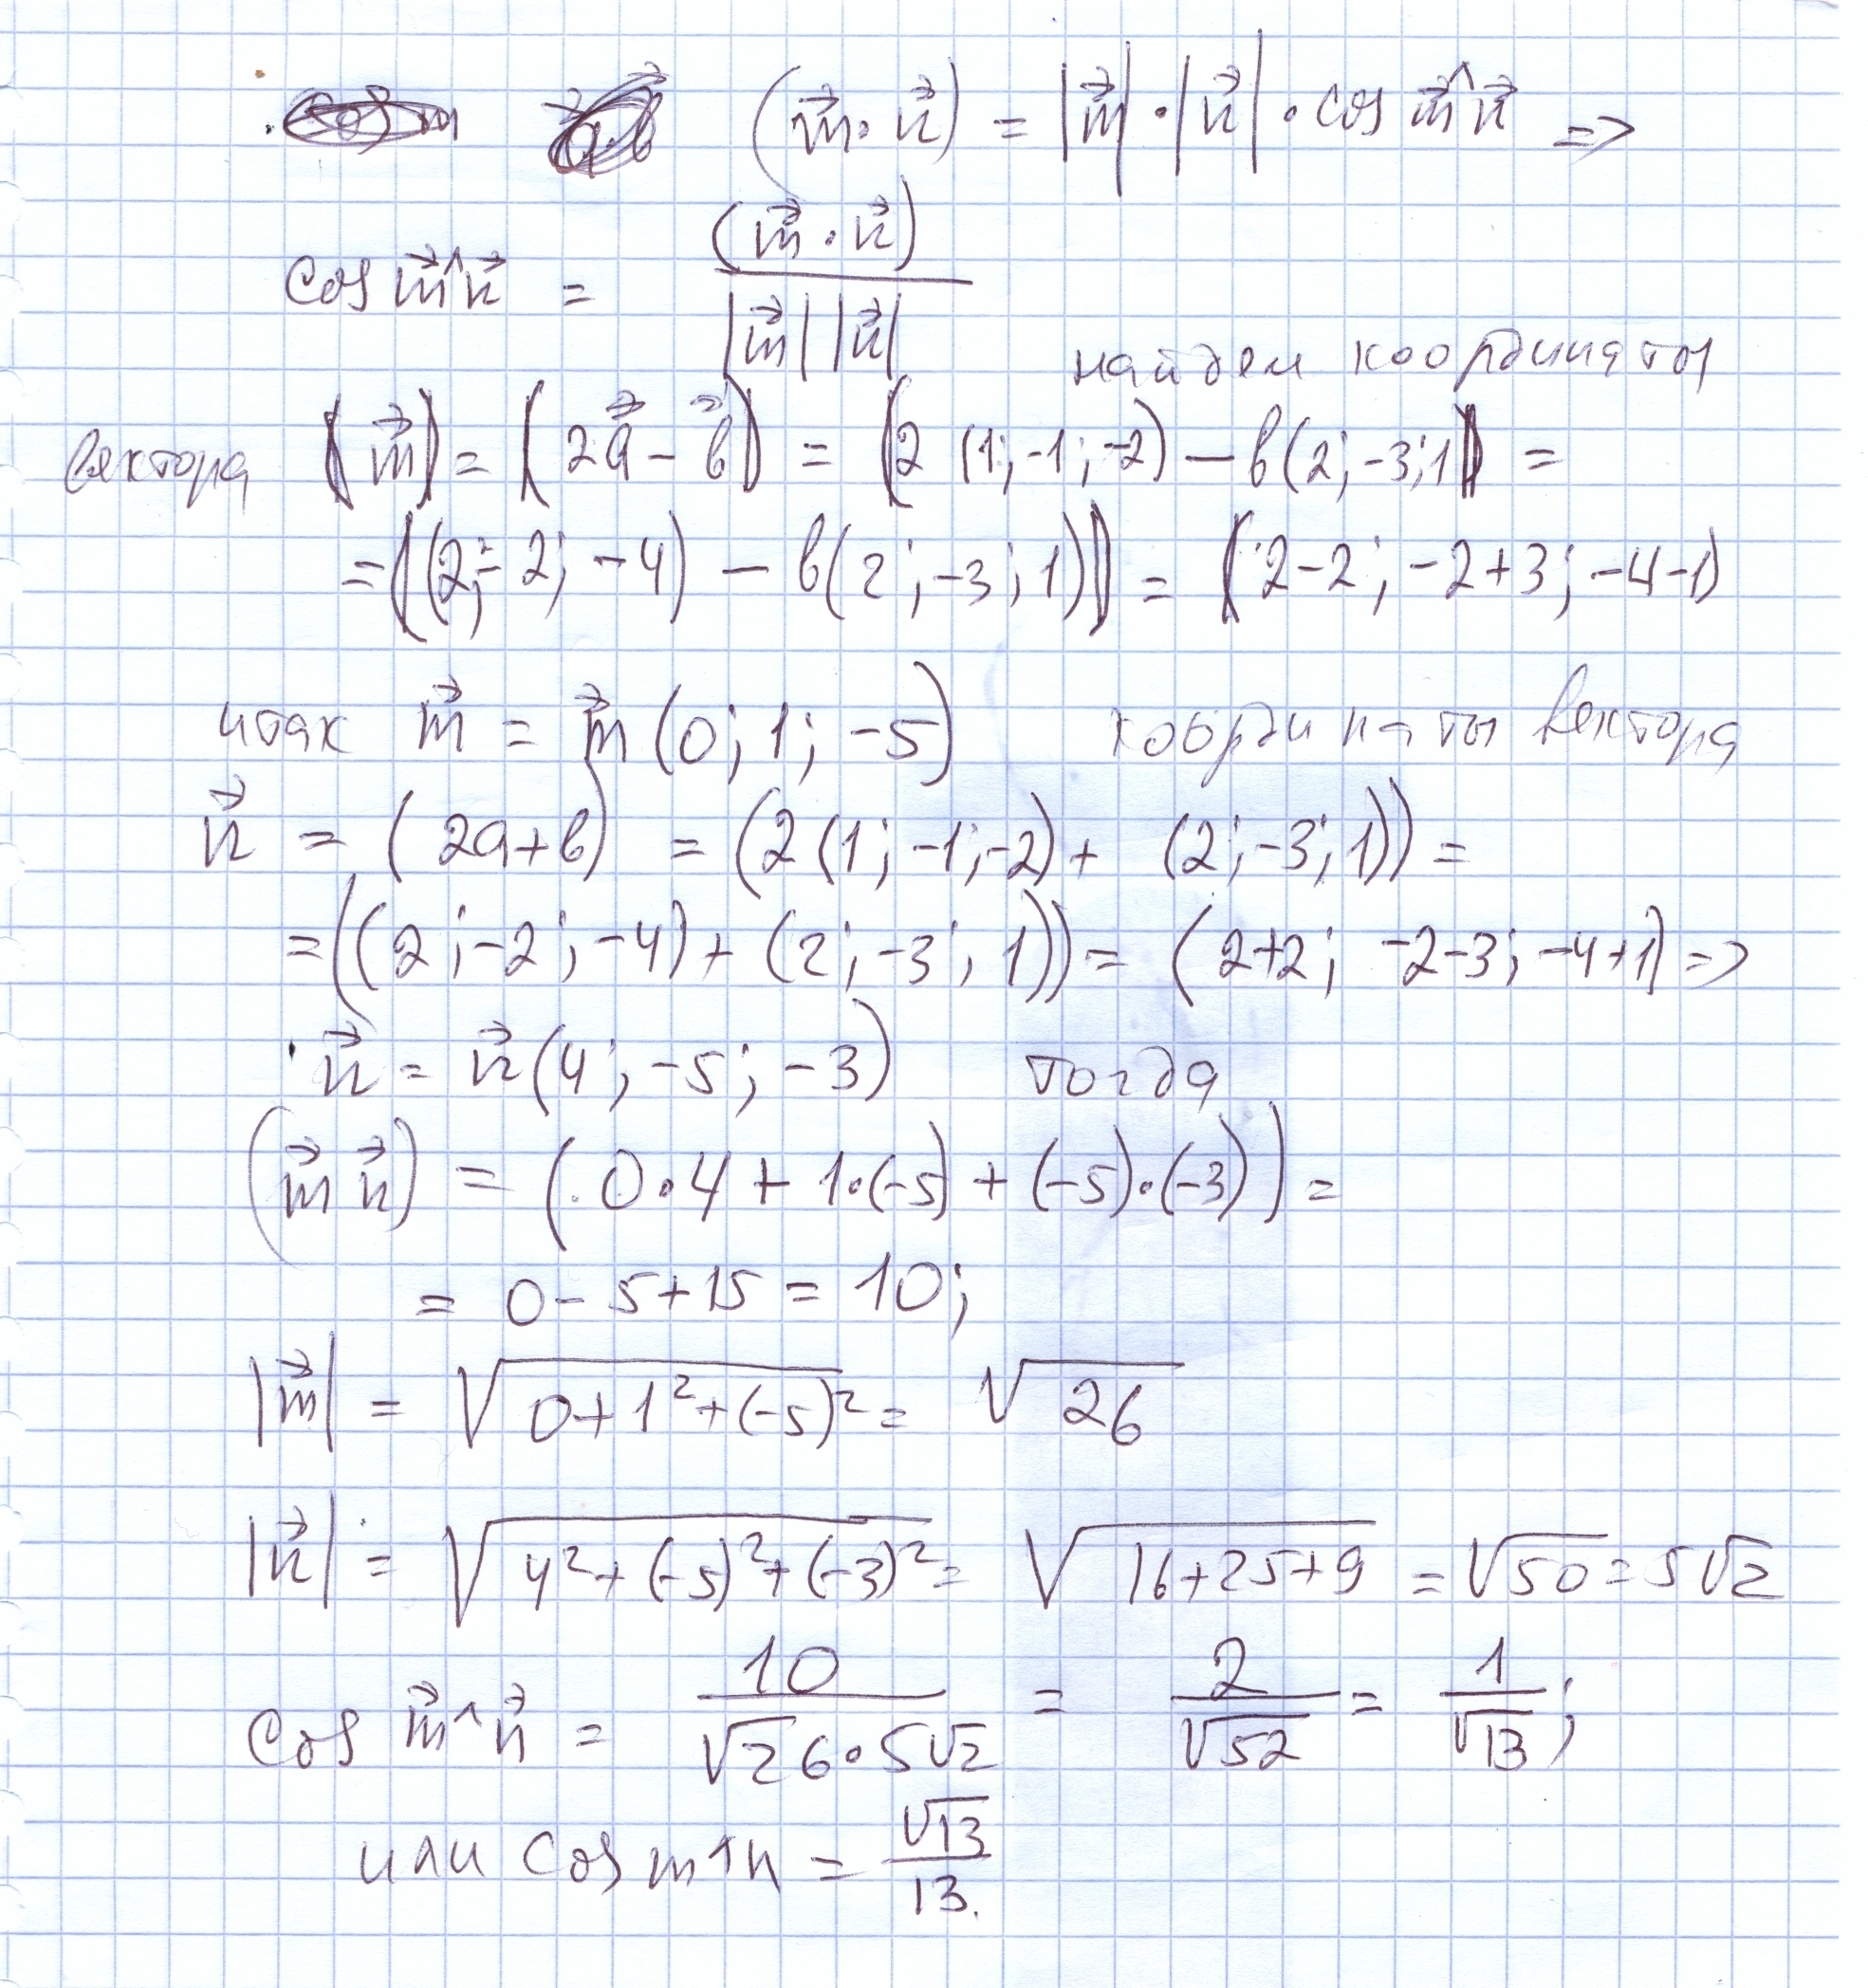 (m⃗ · n⃗) = |m⃗| · |n⃗| · cos m⃗^n⃗ =>
cos m⃗^n⃗ = (m⃗ · n⃗) / |m⃗| |n⃗|
найдем координаты
вектора (m⃗) = (2a⃗ - b⃗) = (2 (1; -1; -2) - в(2; -3; 1)) =
= ((2; -2; -4) - в(2; -3; 1)) = (2-2; -2+3; -4-1)
итак m⃗ = m⃗ (0; 1; -5) координаты вектора
n⃗ = (2a+в) = (2 (1; -1; -2) + (2; -3; 1)) =
= ((2; -2; -4) + (2; -3; 1)) = (2+2; -2-3; -4+1) =>
n⃗ = n⃗ (4; -5; -3) тогда
(m⃗ n⃗) = (0·4 + 1·(-5) + (-5)·(-3)) =
= 0 - 5 + 15 = 10;
|m⃗| = √(0+1²+(-5)²) = √26
|n⃗| = √(4²+(-5)²+(-3)²) = √(16+25+9) = √50 = 5√2
cos m⃗^n⃗ = 10 / √26·5√2 = 2/√52 = 1/√13;
или cos m^n = √13/13.